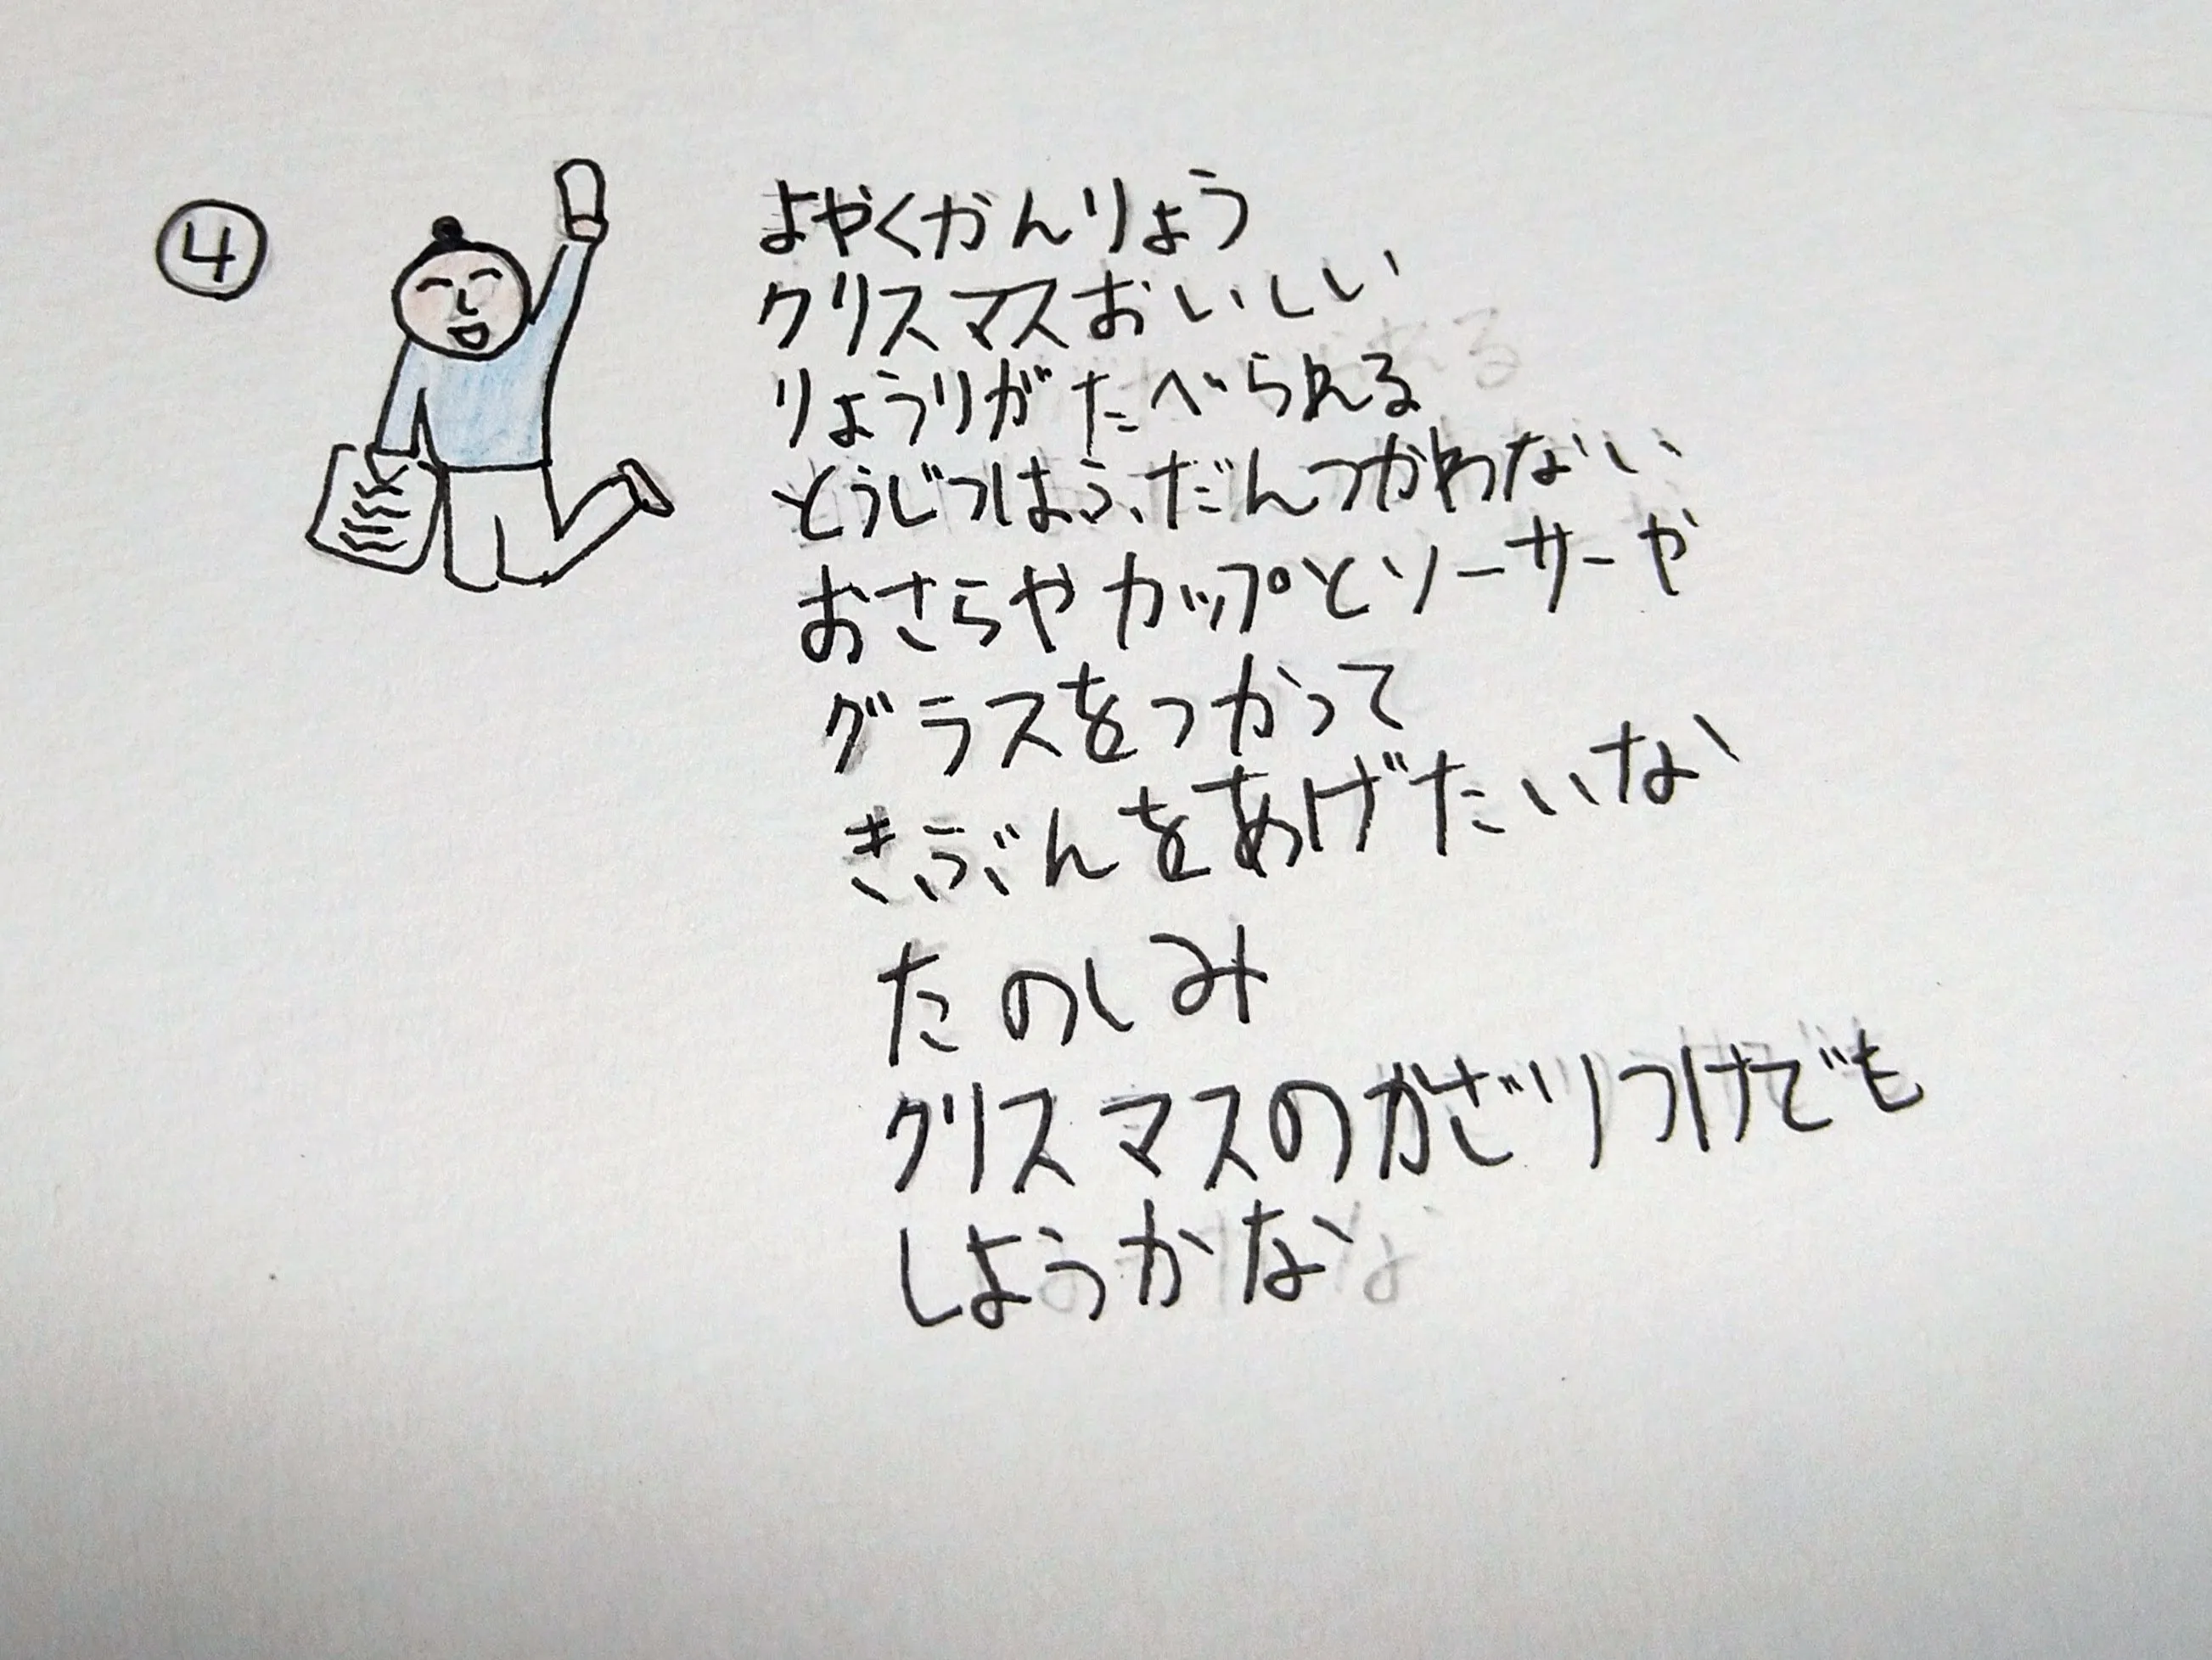 ④
よやくかんりょう
クリスマスおいしい
りょうりがたべられる
とうじつはふだんつかわない
おさらやカップとソーサーや
グラスをつかって
きぶんをあげたいな
たのしみ
クリスマスのかざりつけでも
しようかな